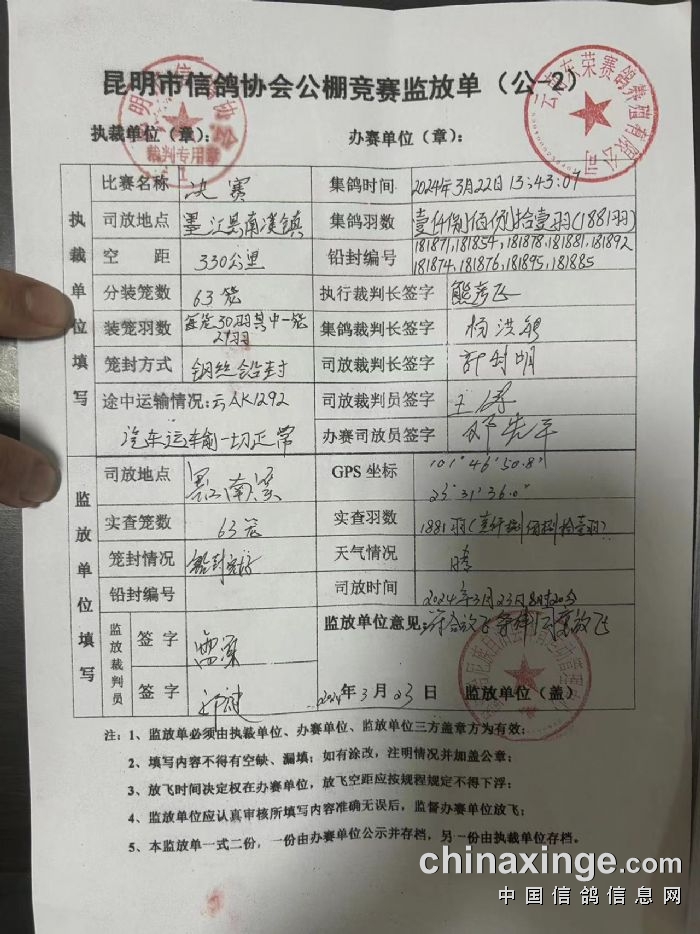 昆明市信鸽协会公棚竞赛监放单（公-2）
执裁单位（章）： 办赛单位（章）：
裁判专用章
执裁单位填写
比赛名称 决赛 集鸽时间 2024年3月22日 13:43:07
司放地点 墨江县南溪镇 集鸽羽数 壹仟捌佰捌拾壹羽(1881羽)
空距 330公里 铅封编号 181871,181854,181878,181881,181892
181874,181876,181895,181885
分装笼数 63笼 执行裁判长签字 熊彦飞
装笼羽数 每笼30羽其中一笼 集鸽裁判长签字
21羽
笼封方式 钢丝铅封 司放裁判长签字
途中运输情况:云AK1292 司放裁判员签字 王
汽车运输一切正常 办赛司放员签字
监放单位填写
司放地点 GPS 坐标 101°46′50.8″
23°31′36.0″
实查笼数 63笼 实查羽数 1881羽(壹仟捌佰捌拾壹羽)
笼封情况 铅封完好 天气情况 晴
铅封编号 司放时间 2024年3月23日8时20分
监放裁判员
签字 监放单位意见: 符合放飞条件同意放飞
签字 2024年3月23日 监放单位（盖）
注：1、监放单必须由执裁单位、办赛单位、监放单位三方盖章方为有效；
2、填写内容不得有空缺、漏填；如有涂改，注明情况并加盖公章；
3、放飞时间决定权在办赛单位，放飞空距应按规程规定不得下浮；
4、监放单位应认真审核所填写内容准确无误后，监督办赛单位放飞；
5、本监放单一式二份，一份由办赛单位公示并存档，另一份由执裁单位存档。
chinaxinge.com
中国信鸽信息网